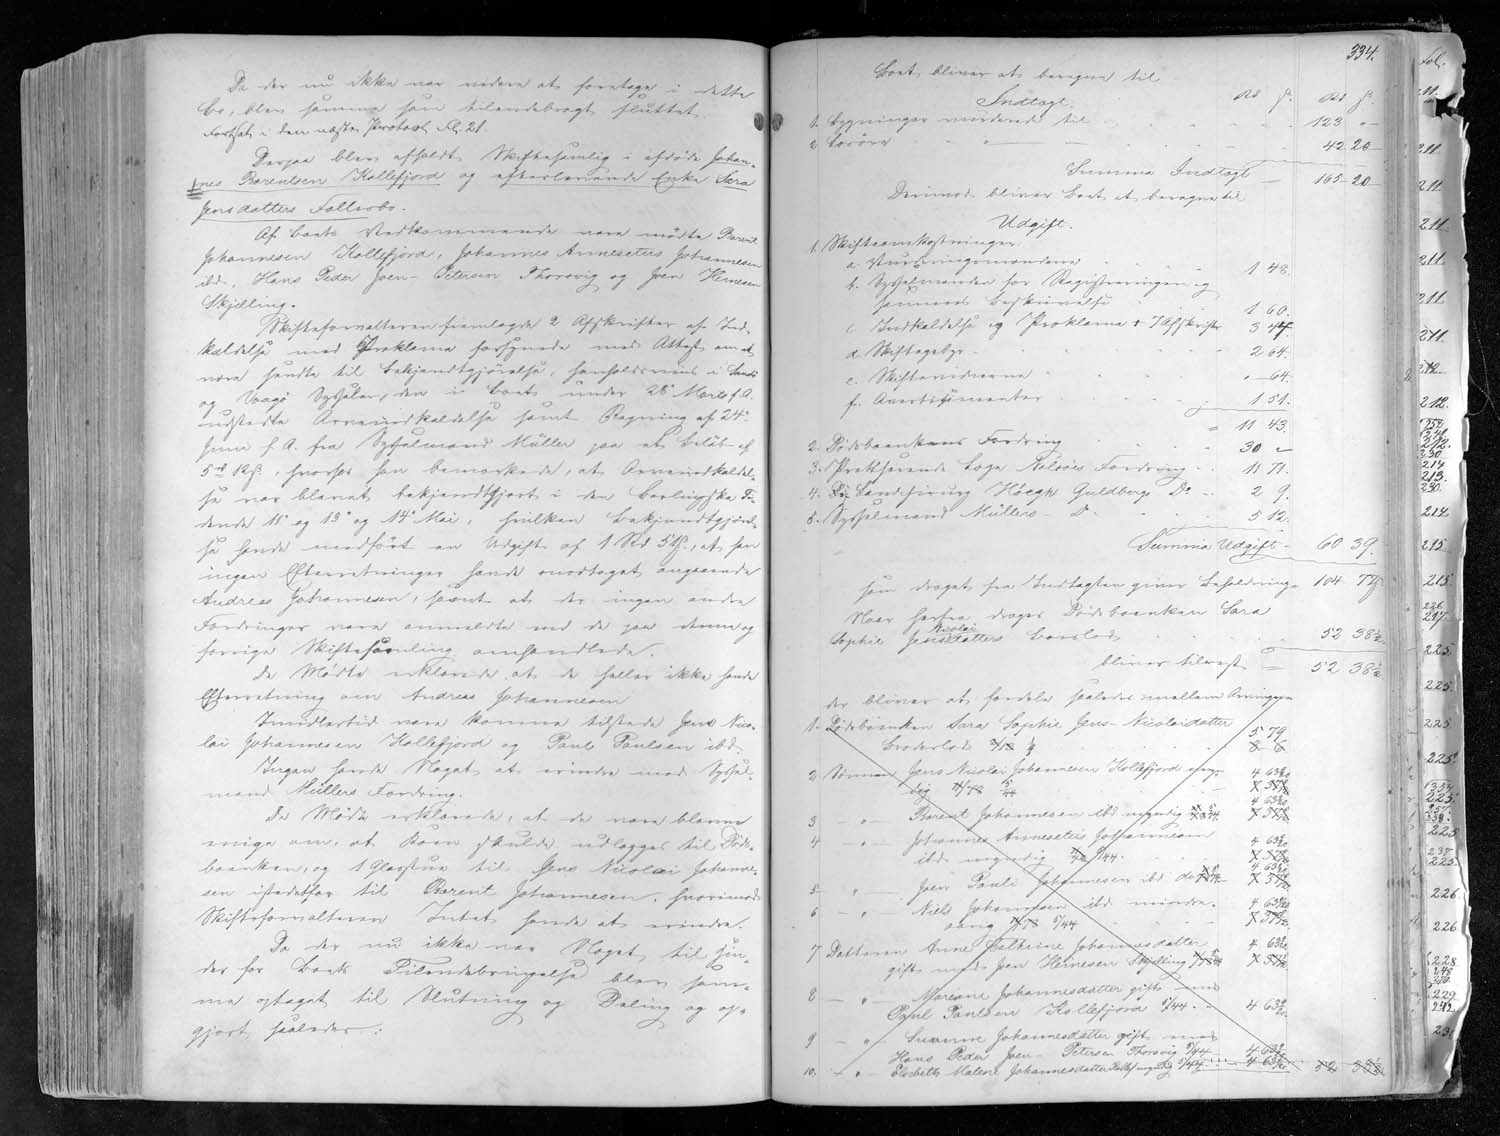 Da der nu ikke var videre at foretage i dette
Bo, blev samme som tilendebragt sluttet.
Fortsat i den næste Protocol Fol. 21.
Derpaa blev afholdt Skiftesamling i afdøde Johan-
nes Barentsen Kollefjord og efterlevende Enke Sara
Jensdatters Fællesbo.
Af Boets Vedkommende vare mødte Barent
Johannesen Kollefjord, Johannes Annesetus Johannesen
ibd., Hans Peder Joen-Petersen Thorsvig og Joen Hernesen
Skjælling.
Skifteforvalteren fremlagde 2 Afskrifter af Ind-
kaldelse med Proklama forsynede med Attest om at
være sendte til Bekjendtgjørelse, henholdsvis i Sandø
og Vaagø Sysseler, den i Boet under 28de Marts f. A.
udstedte Arveindkaldelse samt Regning af 24de
Juni f. A. fra Sysselmand Müller paa et Beløb af
5 rd 12 s, hvorhos han bemærkede, at Arveindkaldel-
se var blevet bekjendtgjort i den Berlingske Ti-
dende 11te og 13de og 14de Mai, hvilken Bekjendtgjørel-
se havde medført en Udgift af 1 Rd 51 s, at han
ingen Efterretninger havde modtaget angaaende
Andreas Johannesen, samt at der ingen andre
Fordringer vare anmeldte end de paa denne og
forrige Skiftesamling omhandlede.
De Mødte erklærede, at de heller ikke havde
Efterretning om Andreas Johannesen
Imidlertid vare komne tilstede Jens Nico-
lai Johannesen Kollefjord og Paul Paulsen ibd.
Ingen havde Noget at erindre mod Syssel-
mand Müllers Fordring.
De Mødte erklærede, at de vare blevne
enige om, at Koen skulde udlægges til Døds-
boenken, og 1 Glasstue til Jens Nicolai Johanne-
sen istedetfor til Barent Johannesen, hvorimod
Skifteforvalteren Intet havde at erindre.
Da der nu ikke var Noget til Hin-
der for Boets Tilendebringelse blev sam-
me optaget til Slutning og Deling og op-
gjort saaledes:
334.
Boet bliver at beregne til
Indtægt.
Rd s. Rd s.
1. Bygninger vurderede til 123 "
2 Løsøre " 42 20
Summa Indtægt 165 20
Derimod bliver Boet at beregne til
Udgift.
1. Skifteomkostninger:
a. Vurderingsmændene 1 48.
b. Sysselmanden for Registreringen og
sammes Beskrivelse 1 60.
c. Indkaldelse og Proklama + 7 Afskrifter 3 44
d. Skiftegebyr 2 64.
e. Skiftevidnerne " 64.
f. Avertissementer 1 51.
11 43.
2. Dødsboenkens Fordring 30 "
3. Proktissende Læge Fordring 11 71.
4. Landchirurg Høegh Guldbergs Do 2 9.
5. Sysselmand Müllers D. 5 12.
Summa Udgift 60 39.
som draget fra Indtægten giver Beholdning 104 77 s
Naar herfra drages Dødsboenken Sara
Sophie Jens Nicolai datters Boeslod 52 38½
bliver tilrest 52 38½
der bliver at fordele saaledes mellem Arvingerne
1. Dødsboenken Sara Sophie Jens-Nicolaidatter
Broderlod 5 79
2 Sønnen Jens Nicolai Johannesen Kollefjord myn-
dig 4 63
3 - " - Barent Johannesen ibd myndig 4 63
4 - " - Johannes Annesetus Johannesen
ibd. myndig 4 63
5. " - Joen Pauli Johannesen ibd do 4 63
6 - " - Niels Johannesen ibd. mindre-
aarig 4 63
7 Datteren Anne Cathrine Johannesdatter
gift med Joen Hernesen Skjælling 4 63
8 - " - Mariane Johannesdatter gift med
Paul Paulsen Kollefjord 4 63
9 - " - Susanne Johannesdatter gift med
Hans Peder Joen-Petersen Thorsvig 4 63
10. - " - Elsebeth Malene Johannesdatter myndig 4 63 52 38½